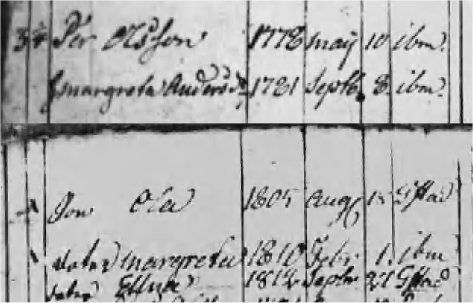 3/4 Pär Olsson 1778 maij 10 ibm.
H margreta Andersd. 1781 Septb. 8. ibm.
Son Ola 1805 Aug 15
dotter margreta 1810 Febr 1. ibm
dotter Ellna 1812 Septbr 21